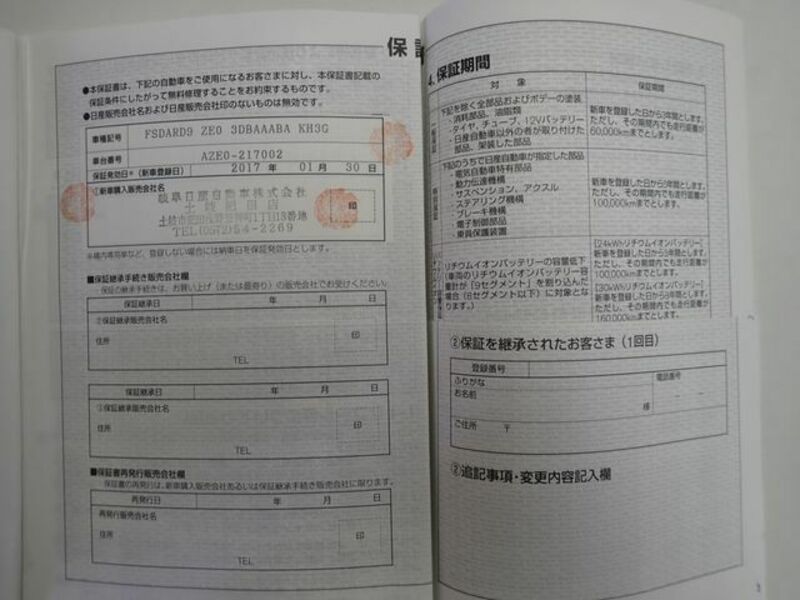 保証
●本保証書は、下記の自動車をご使用になるお客さまに対し、本保証書記載の
保証条件にしたがって無料修理することをお約束するものです。
●日産販売会社名および日産販売会社印のないものは無効です。
車種記号 FSDARD9 ZE0 3DBAAABA KH3G
車台番号 AZE0-217002
保証発効日※(新車登録日) 2017 年 01 月 30 日
①新車購入販売会社名
岐阜日産自動車株式会社
土岐
TEL(0572)54-2269
印
※構内専用車など、登録しない場合には納車日を保証発効日とします。
■保証継承手続き販売会社欄
保証の継承手続きは、お買い上げ(または最寄り)の販売会社でお受けください。
保証継承日 年 月 日
②保証継承販売会社名
住所
印
TEL
保証継承日 年 月 日
③保証継承販売会社名
住所
印
TEL
■保証書再発行販売会社欄
保証書の再発行は、新車購入販売会社あるいは保証継承手続き販売会社に限ります。
再発行日 年 月 日
再発行販売会社名
住所
印
TEL
4. 保証期間
対象 保証期間
下記を除く全部品およびボデーの塗装
・消耗部品、油脂類
・タイヤ、チューブ、12Vバッテリー
・日産自動車以外の者が取り付けた
部品、架装した部品
新車を登録した日から3年間とします。
ただし、その期間内でも走行距離が
60,000kmまでとします。
下記のうちで日産自動車が指定した部品
・電気自動車特有部品
・動力伝達機構
・サスペンション、アクスル
・ステアリング機構
・ブレーキ機構
・電子制御部品
・乗員保護装置
新車を登録した日から5年間とします。
ただし、その期間内でも走行距離が
100,000kmまでとします。
リチウムイオンバッテリーの容量低下
(車両のリチウムイオンバッテリー容
量計が「9セグメント」を割り込んだ
場合(8セグメント以下)に対象とな
ります。)
[24kWhリチウムイオンバッテリー]
新車を登録した日から5年間とします。
ただし、その期間内でも走行距離が
100,000kmまでとします。
[30kWhリチウムイオンバッテリー]
新車を登録した日から8年間とします。
ただし、その期間内でも走行距離が
160,000kmまでとします。
②保証を継承されたお客さま(1回目)
登録番号
ふりがな
お名前
様
電話番号
- -
ご住所 〒
②追記事項・変更内容記入欄